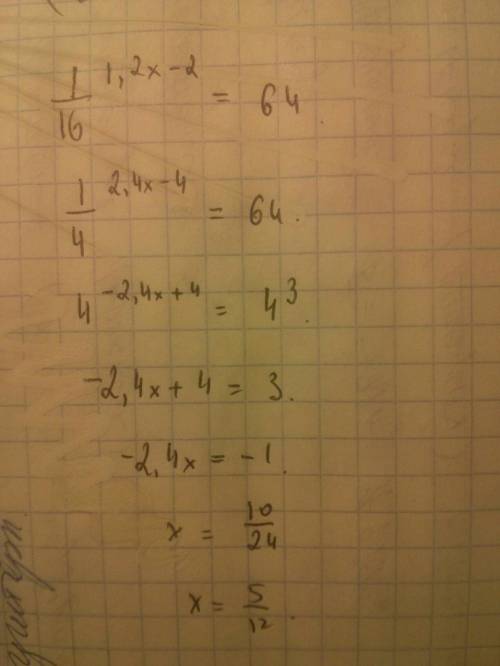 1/16^1,2x-2 = 64.
1/4^2,4x-4 = 64.
4^-2,4x+4 = 4^3.
-2,4x + 4 = 3.
-2,4x = -1.
x = 10/24
x = 5/12.